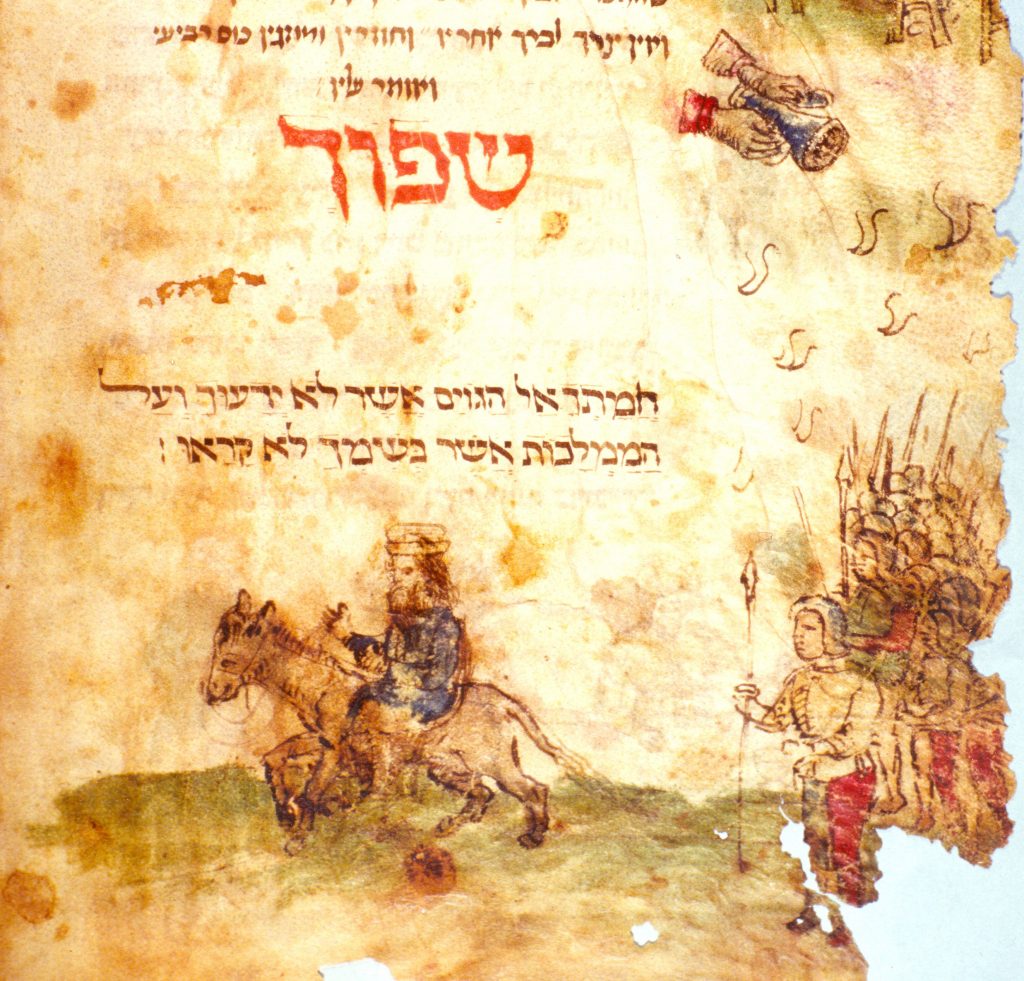 ואין צריך לברך אחריו וחוזרין ומוזגין כוס רביעי
ואומר עליו
שפוך
חֲמָתְךָ אֶל הַגוֹיִם אֲשֶׁר לֹא יְדָעוּךָ וְעַל
הַמַמְלָכוֹת אֲשֶׁר בְשִימְךָ לֹא קָרָאוּ :